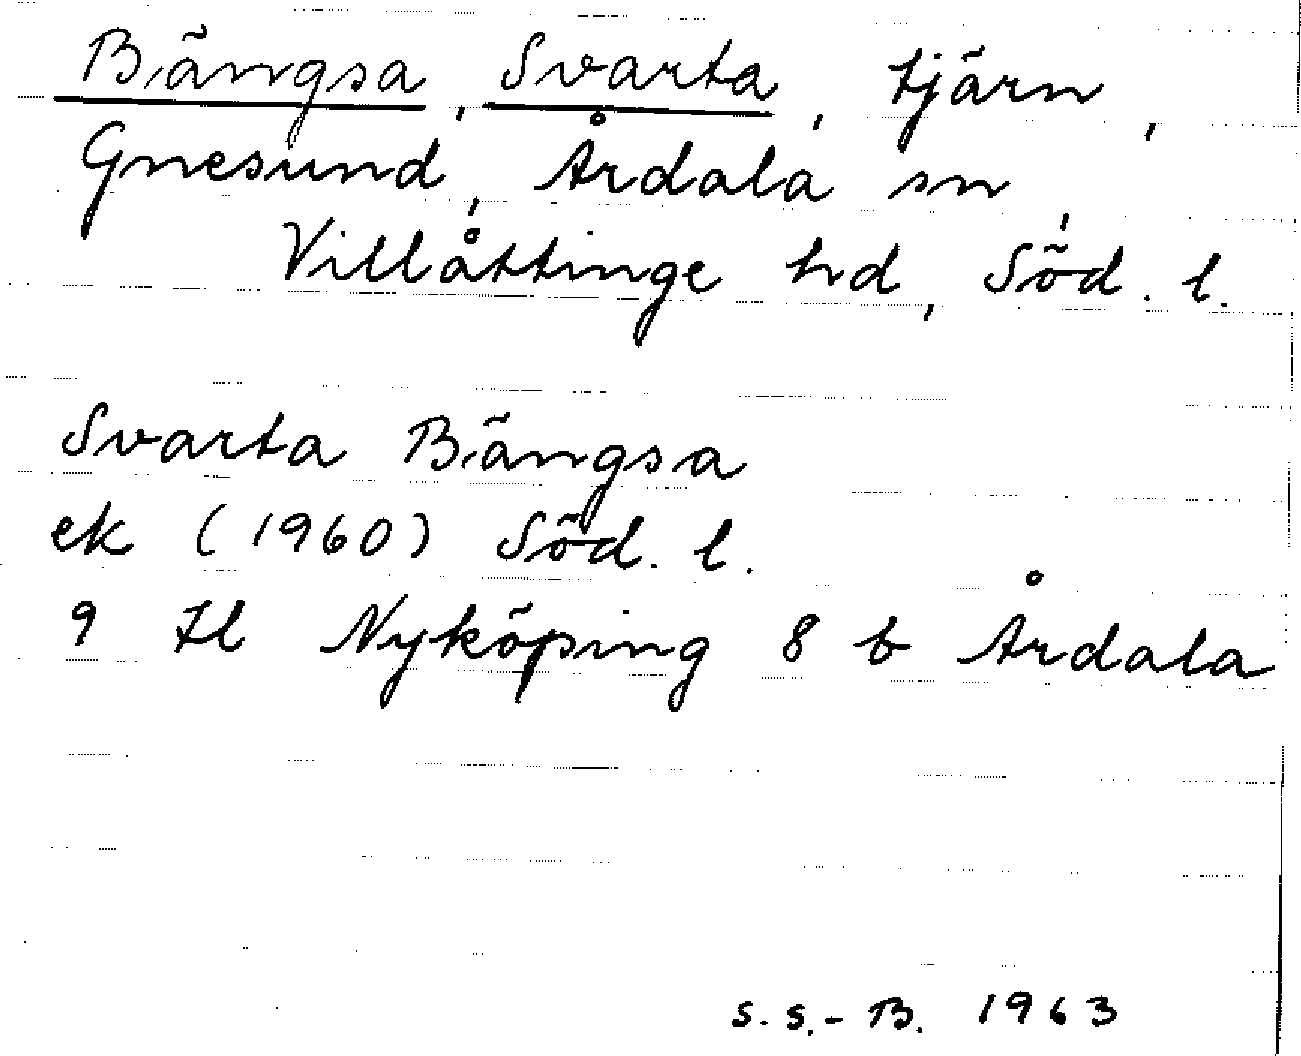 Bängsa, Svarta, tjärn,
Gnesund, Årdala sn,
Villåttinge hd, Söd. l.
Svarta Bängsa
ek (1960) Söd. l.
9 Hl Nyköping 8 b Årdala
S.S.-B. 1963